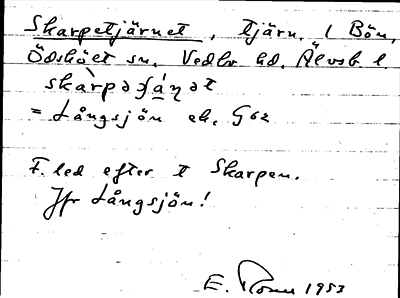 Skarpetjärnet, tjärn. i Bön,
Ödskölt sn. Vedbo hd. Älvsb l.
skàrpəʃáṇət
= Långsjön ek. G 62
F. led efter t Skarpen.
Jfr Långsjön!
E. 1953